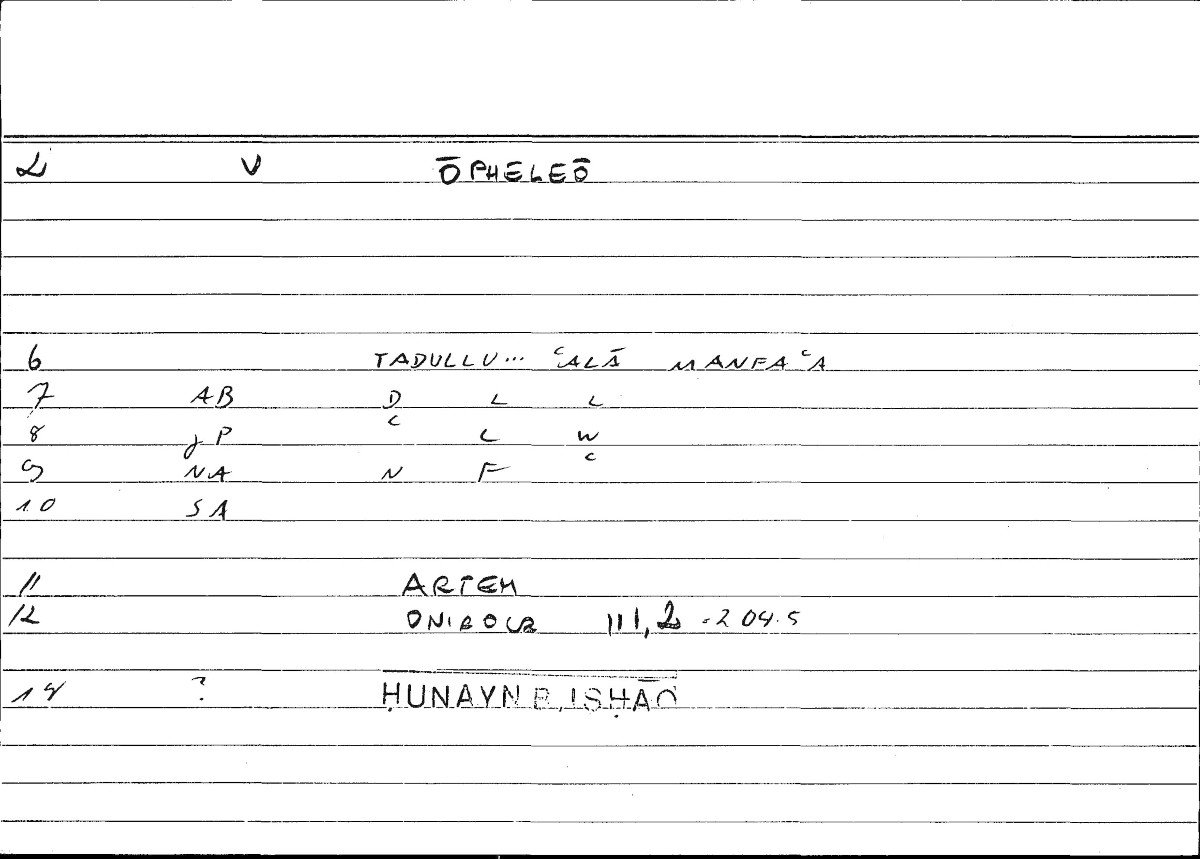 2 V ŌPHELEŌ
6 TADULLU... ʿALĀ MANFAʿA
7 AB D L L
8 jP ʿ L W
9 NA N F ʿ
10 SA
11 ARTEM
12 ONIROCR III, 2 -204.5
14 ? ḤUNAYN B. ISḤĀQ